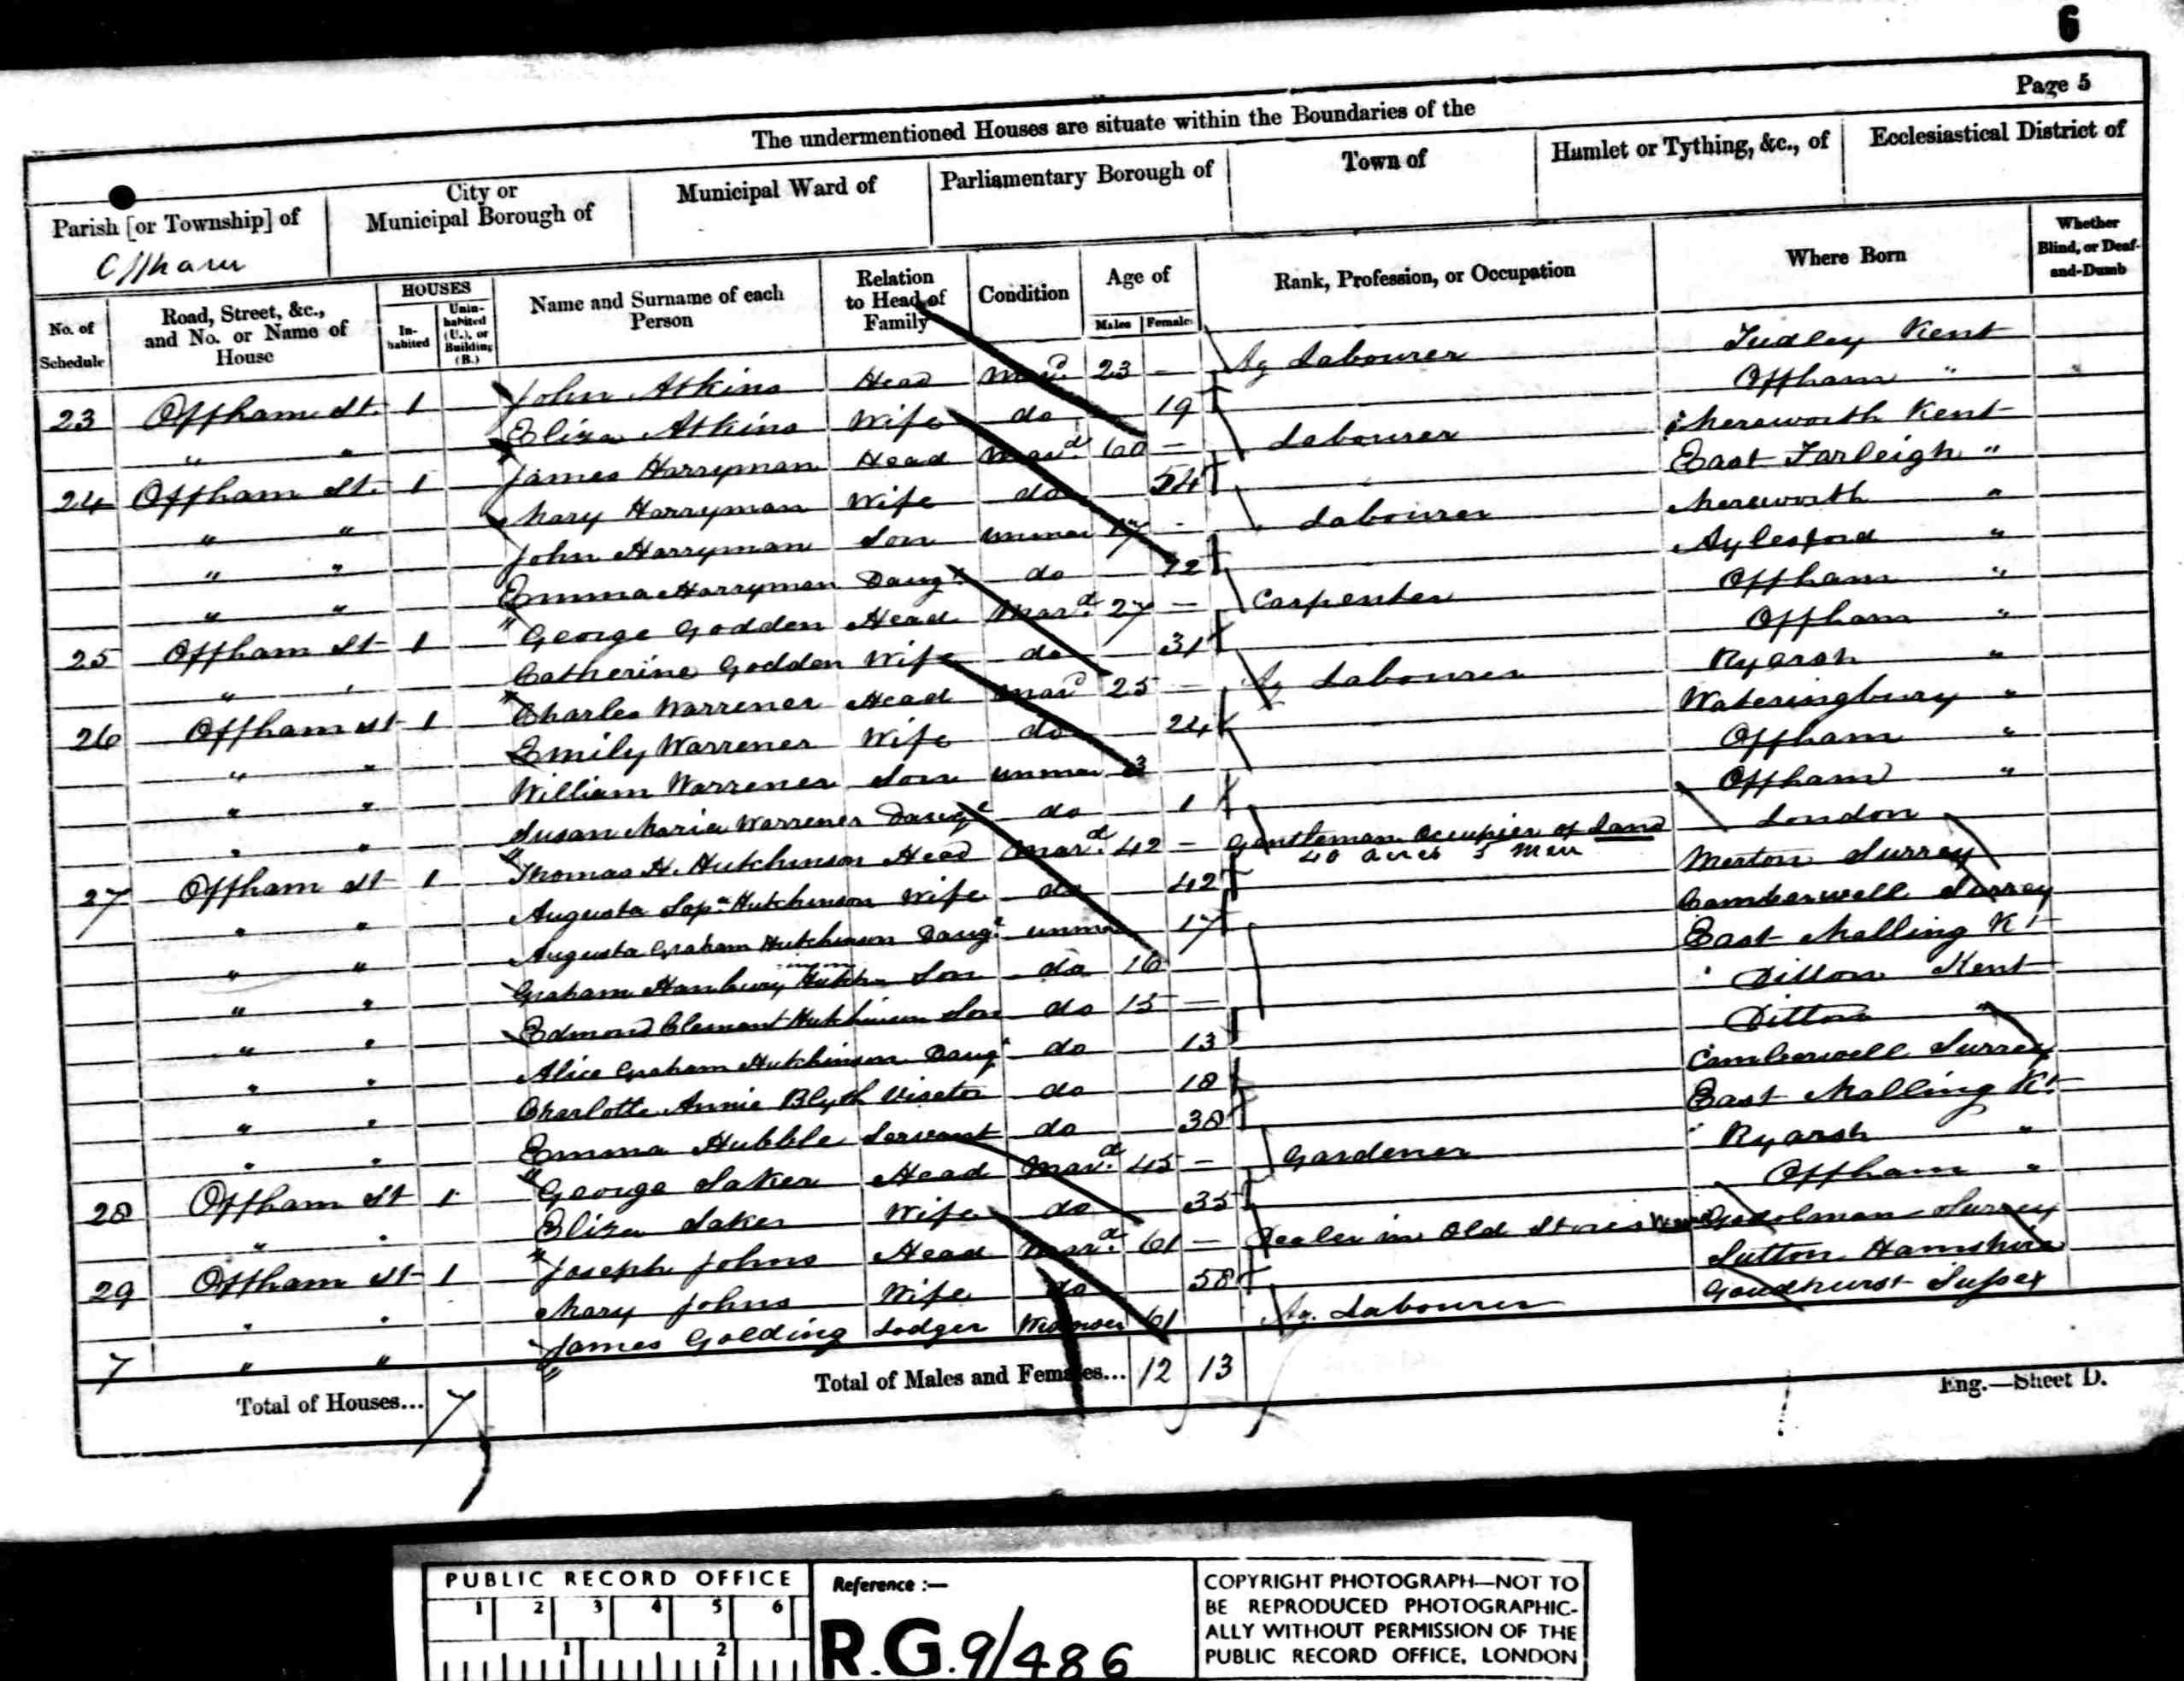 6
Page 5
The undermentioned Houses are situate within the Boundaries of the
Parish [or Township] of
Offham
City or
Municipal Borough of
Municipal Ward of
Parliamentary Borough of
Town of
Hamlet or Tything, &c., of
Ecclesiastical District of
No. of Schedule
Road, Street, &c., and No. or Name of House
HOUSES
In-habited
Unin-habited (U.), or Building (B.)
Name and Surname of each Person
Relation to Head of Family
Condition
Age of
Males
Females
Rank, Profession, or Occupation
Where Born
Whether Blind, or Deaf-and-Dumb
23 Offham St. 1 John Atkins Head Mard. 23 — Ag Labourer Tudley Kent
" " Eliza Atkins Wife do 19 Offham "
24 Offham St. 1 James Harryman Head Mard. 60 — Labourer Mereworth Kent
" " Mary Harryman Wife do 54 East Farleigh "
" " John Harryman Son unmar 17 — Labourer Mereworth "
" " Emma Harryman Daugr. do 12 Aylesford "
25 Offham St 1 George Godden Head Mard. 27 — Carpenter Offham "
" " Catherine Godden Wife do 31 Offham "
26 Offham St 1 Charles Warrener Head Mard 25 — Ag Labourer Ryarsh "
" " Emily Warrener Wife do 24 Wateringbury "
" " William Warrener Son unmar 3 Offham "
" " Susan Maria Warrener Daugr do 1 Offham "
27 Offham St 1 Thomas H. Hutchinson Head Mard. 42 — Gentleman Occupier of Land London
40 acres 5 Men
" " Augusta Sopa. Hutchinson Wife do 42 Merton Surrey
" " Augusta Graham Hutchinson Daugr. unmar 17 Camberwell Surrey
" " Graham Hanbury Son do 16 East Malling Kt
" " Edmond Clement Hutchinson Son do 15 — Ditton Kent
" " Alice Graham Hutchinson Daugr do 13 Ditton "
" " Charlotte Annie Blyth Visetor do 18 Camberwell Surrey
" " Emma Hubble Servant do 38 East Malling Kt.
28 Offham St 1 George Saker Head Mard. 45 — Gardener Ryarsh "
" " Eliza Saker Wife do 35 Offham "
29 Offham St 1 Joseph Johns Head Mard. 61 — Dealer in Old Stores Surrey
" " Mary Johns Wife do 58 Sutton Hamshire
7 " " James Golding Lodger Widower 61 Ag. Labourer Goudhurst Sussex
Total of Houses... 7
Total of Males and Females... 12 13
Eng.—Sheet D.
PUBLIC RECORD OFFICE
1 2 3 4 5 6
1 2
Reference :—
R.G. 9/486
COPYRIGHT PHOTOGRAPH—NOT TO
BE REPRODUCED PHOTOGRAPHIC-
ALLY WITHOUT PERMISSION OF THE
PUBLIC RECORD OFFICE, LONDON